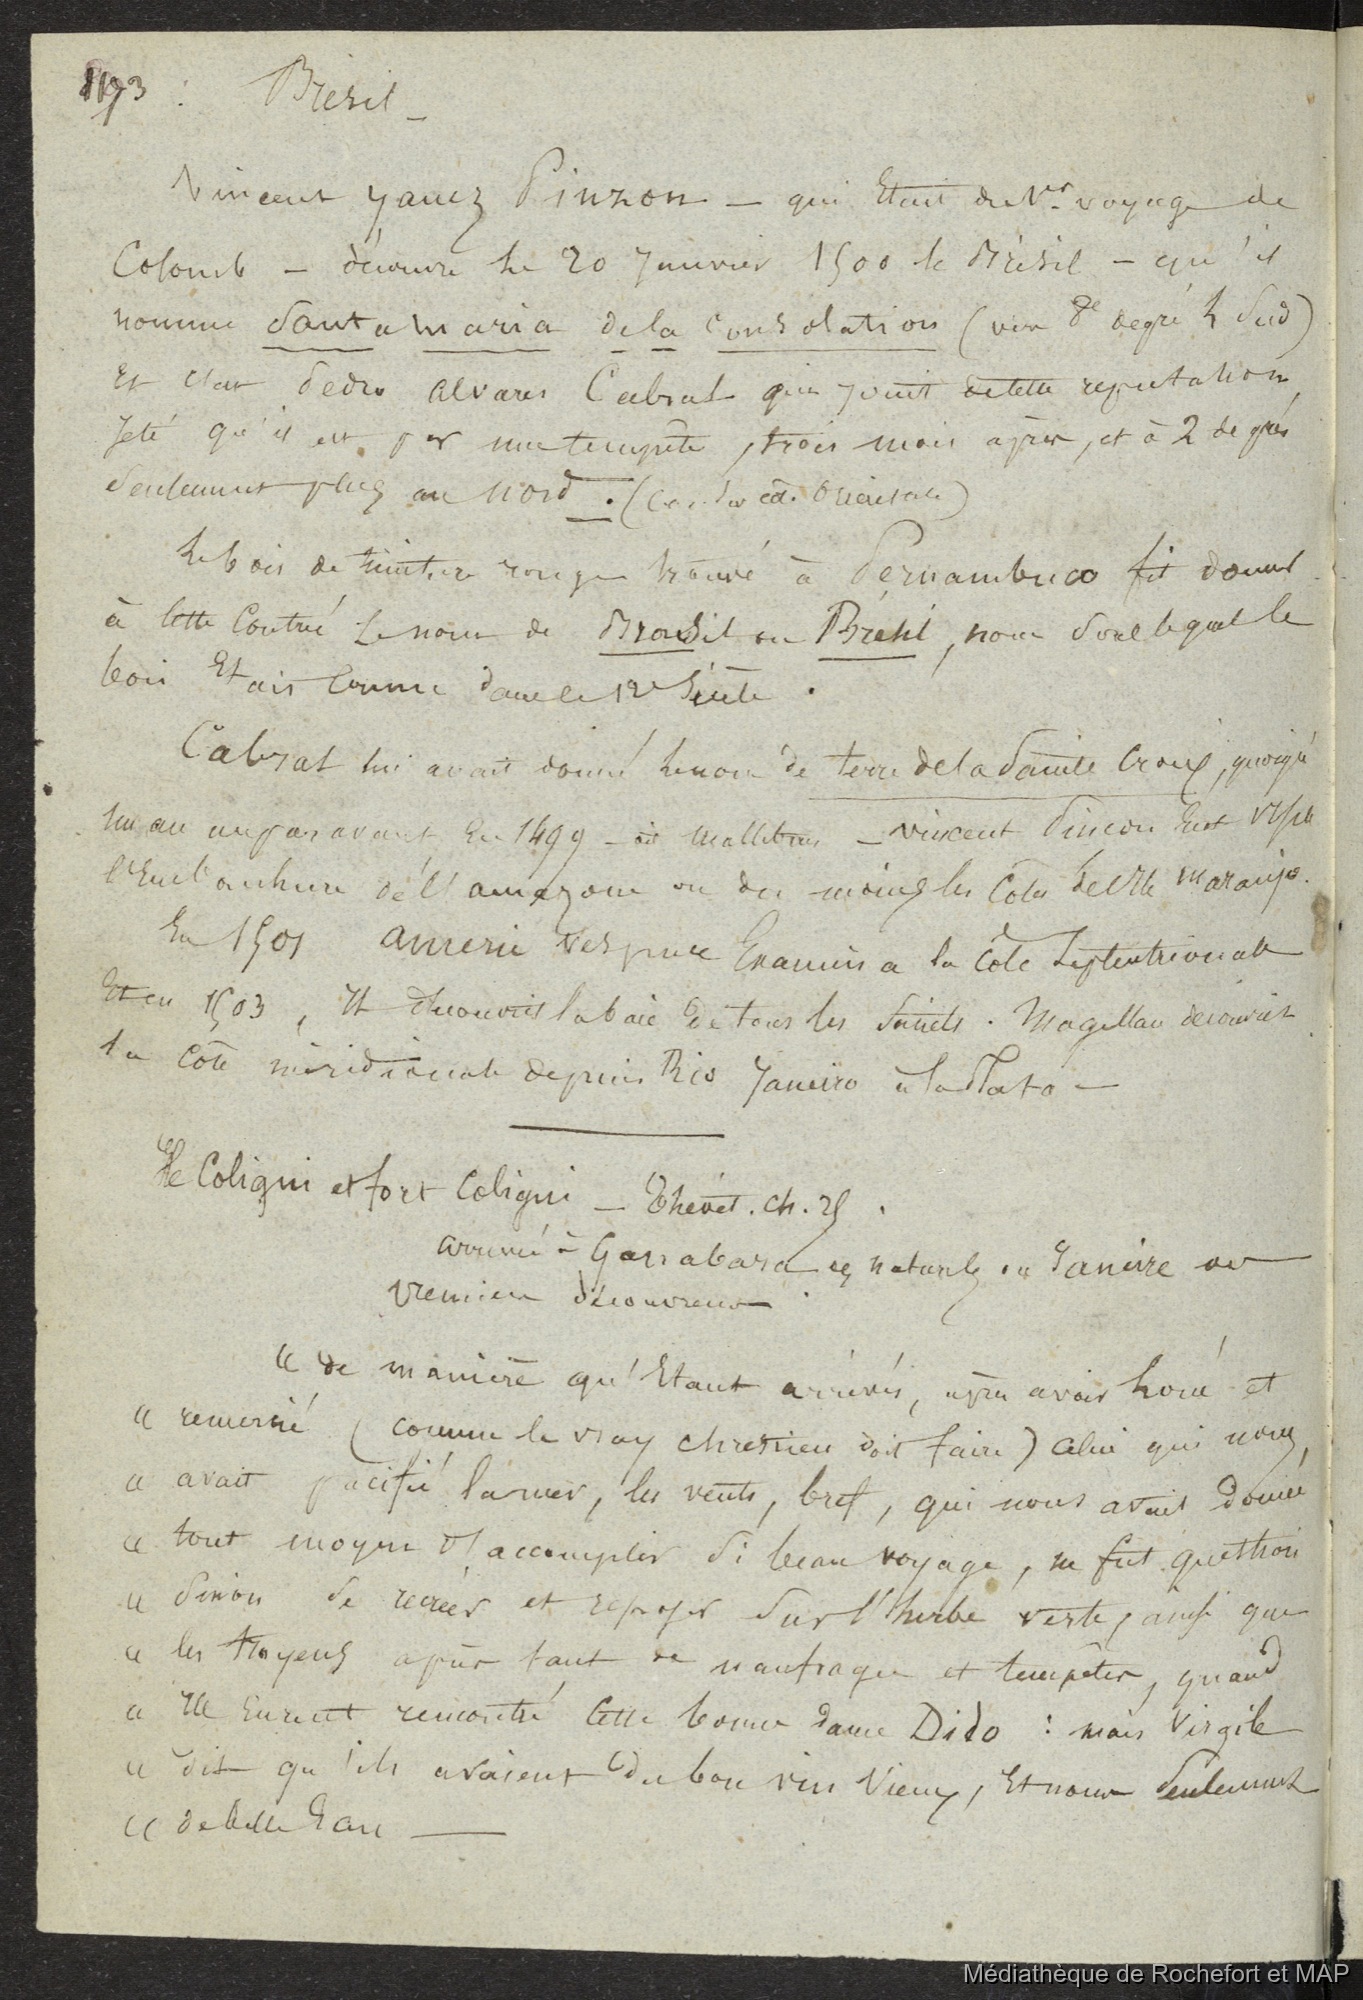 Brésil _
Vincent yanez Pinzon _ qui Etait du 1er voyage de
Colomb _ découvre le 20 Janvier 1500 le Brésil _ qu'il
nomme Santa Maria de la Consolation (vers 8e degré L Sud)
Et c'est Pedro alvares Cabral qui jouit de cette reputation,
Jeté qu'il est par une tempête, trois mois après, et à 2 degrés
Seulement plus au nord. (
Le bois de teinture rouge trouvé à Pernambuco fit donner
à cette Contrée Le nom de Brasil ou Brésil, nom sous lequel le
bois Etait Connu dans le 12e Siècle.
Cabral lui avait donné le nom de terre de la Sainte Croix, quoiqu'
un an auparavant En 1499 _ dit Maltebrun _ vincent Pinson Eut visité
l'Embouchure de l'amazone ou du moins les Côtes de l'Ile Marajo.
En 1501 americ vespuce Examina la Côte Septentrionale
Et en 1503, Il découvrit la baie de tous les Saints. Magellan découvrit
la Côte méridionale depuis Rio Janeiro à la Plata _
Ile Coligni et fort Coligni _ Thévet. ch. 25.
arrivée à Ganabara des naturels ou Janeire av
premiers découvreurs.
« de manière qu'Etant arrivés, après avoir Loué et
« remercié (comme le vray chrestien doit faire) Celui qui nous
« avait pacifié la mer, les vents, bref, qui nous avait donné
« tout moyen d'accomplir Si beau voyage, ne fut question
« Sinon Se recréer et reposer Sur l'herbe verte, ainsi que
« les troyens après tant de naufrages et tempêtes, quand
« Ils Eurent rencontré Cette bonne dame Dido : mais Virgile
« dit qu'ils avaient du bon vin vieux, Et nous Seulement
« de belle Eau
Médiathèque de Rochefort et MAP